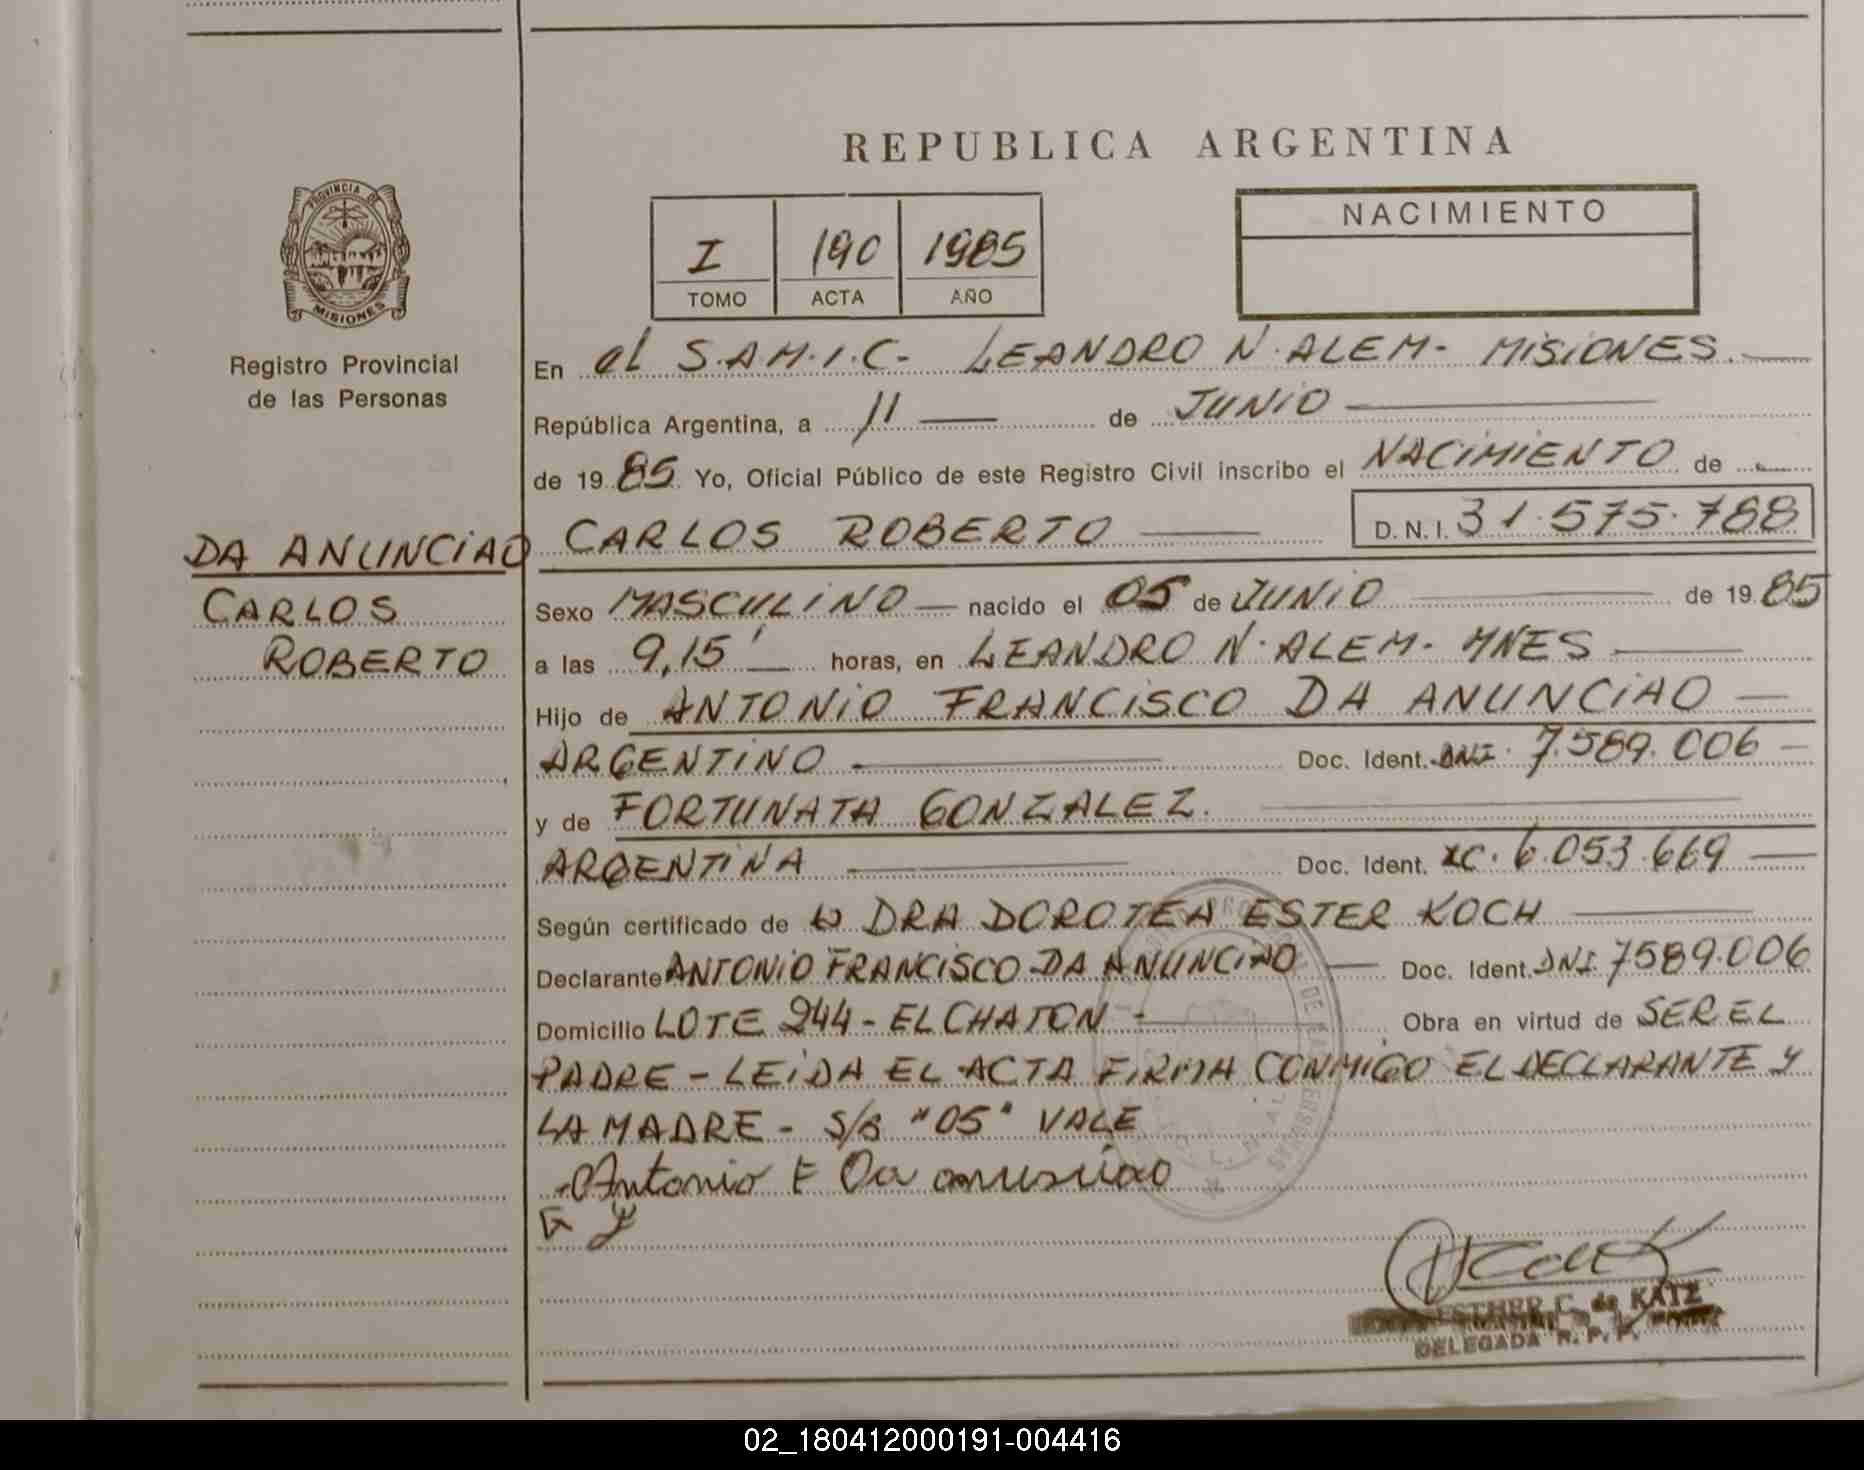 REPUBLICA ARGENTINA
PROVINCIA DE
MISIONES
Registro Provincial
de las Personas
I 190 1985
TOMO ACTA AÑO
NACIMIENTO
En el S.A.M.I.C- LEANDRO N. ALEM- MISIONES.
República Argentina, a 11 de JUNIO
de 19 85 Yo, Oficial Público de este Registro Civil inscribo el NACIMIENTO de
DA ANUNCIAO
CARLOS
ROBERTO
CARLOS ROBERTO D.N.I. 31.575.788
Sexo MASCULINO nacido el 05 de JUNIO de 19 85
a las 9,15' horas, en LEANDRO N. ALEM- MNES
Hijo de ANTONIO FRANCISCO DA ANUNCIAO
ARGENTINO Doc. Ident. DNI. 7.589.006
y de FORTUNATA GONZALEZ.
ARGENTINA Doc. Ident. 6.053.669
Según certificado de DRA DOROTEA ESTER KOCH
Declarante ANTONIO FRANCISCO DA ANUNCIAO Doc. Ident. DNI 7589.006
Domicilio LOTE 244 - EL CHATON - Obra en virtud de SER EL
PADRE - LEIDA EL ACTA FIRMA CONMIGO EL DECLARANTE Y
LA MADRE - S/B "05" VALE
Antonio F Da anunciao
ESTHER C. de KATZ
DELEGADA R. P. P.
02_180412000191-004416